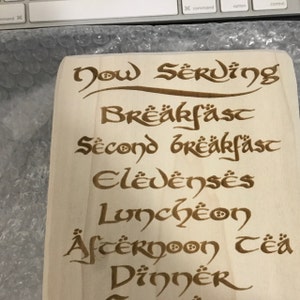 command
option
command
option
Now Serving
Breakfast
Second breakfast
Elevenses
Luncheon
Afternoon Tea
Dinner